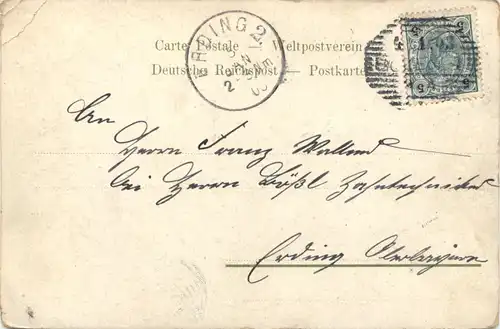 Carte Postale — Weltpostverein
Deutsche Reichspost — Postkarte
ERDING 2
5
JAN
An
Herrn Franz
bei Herrn Bößl Zahntechniker
Erding Oberbayern